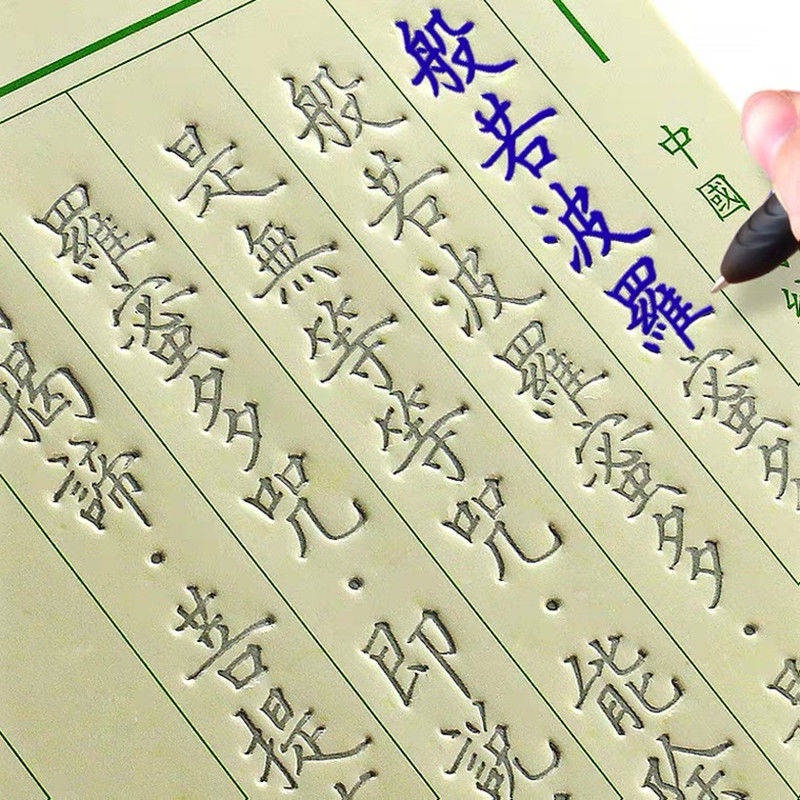 中國
般若波羅蜜多
般若波羅蜜多·
是無等等咒·能除
羅蜜多咒·即說
揭諦·菩提